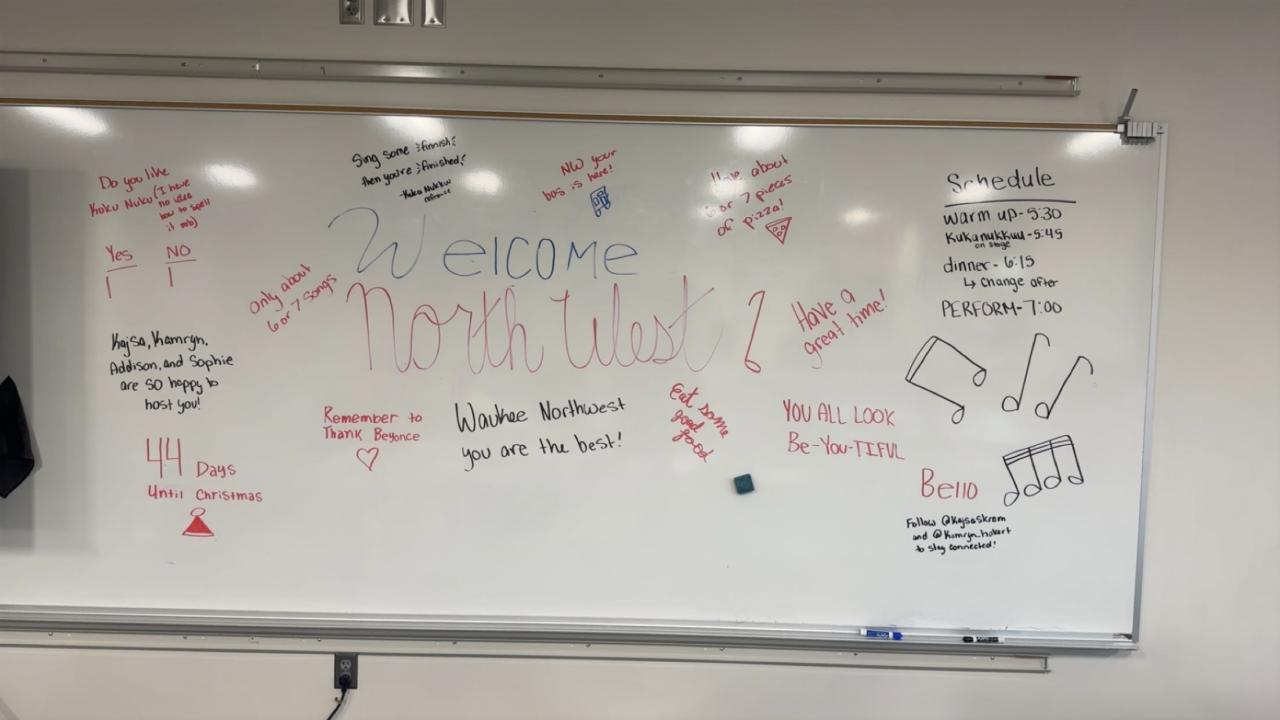 Do you like
Koku Nuku (I have
no idea
how to spell
it mb)
Yes NO
Sing some finnish
then you're finished!
NW your
bas is here!
Have about
6 or 7 pieces
of pizza!
Welcome
North West
Only about
6 or 7 songs
Have a
great time!
Kajsa, Kamryn,
Addison, and Sophie
are SO happy to
host you!
44 Days
Until Christmas
Remember to
Thank Beyonce
Waukee Northwest
you are the best!
Eat some
good
food
YOU ALL LOOK
Be-YOU-TIFUL
Schedule
warm up - 5:30
Kukanukkuu - 5:45
on stage
dinner - 6:15
↳ change after
PERFORM - 7:00
Bello
Follow @KajsaSkrem
and @Kamryn_hokart
to stay connected!